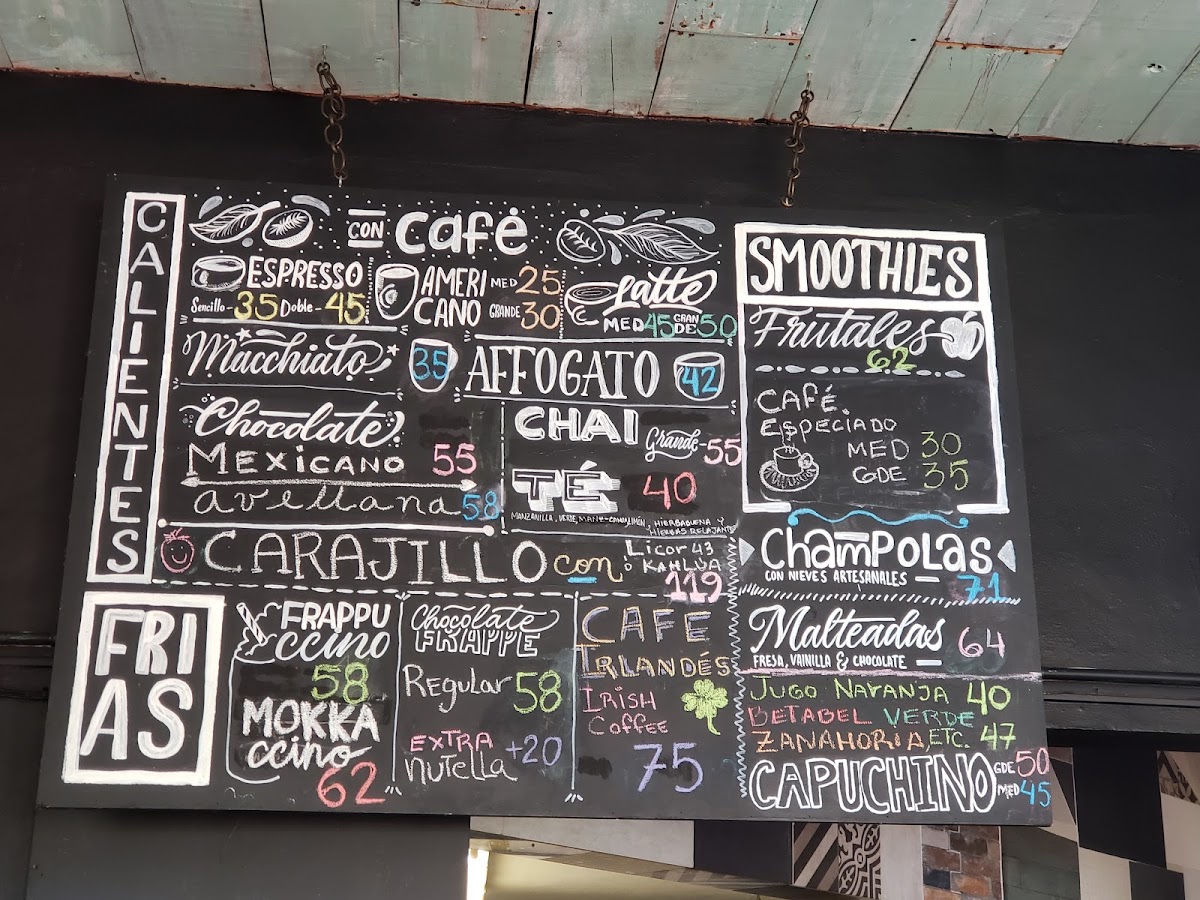 CALIENTES
CON Café
ESPRESSO
Sencillo - 35 Doble - 45
AMERICANO
MED 25
GRANDE 30
Latte
MED 45 GRANDE 50
Macchiato 35
AFFOGATO 42
Chocolate
MEXICANO 55
avellana 58
CHAI
Grande - 55
TÉ 40
MANZANILLA, VERDE, LIMÓN, HIERBABUENA Y
HIERBAS RELAJANTE
CARAJILLO con Licor 43
ó KAHLUA
119
FRIAS
FRAPPU
CCINO
58
MOKKA
CCINO
62
Chocolate
FRAPPE
Regular 58
EXTRA
nutella +20
CAFE
IRLANDÉS
IRISH
COFFEE
75
SMOOTHIES
Frutales
62
CAFÉ.
ESPECIADO
MED 30
GDE 35
ChamPOLAS
CON NIEVES ARTESANALES 71
Malteadas 64
FRESA, VAINILLA & CHOCOLATE
JUGO NARANJA 40
BETABEL VERDE
ZANAHORIA, ETC. 47
CAPUCHINO GDE 50
MED 45